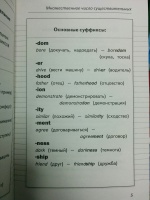 Множественное число существительных
Основные суффиксы:
-dom
bore (докучать, надоедать) — boredom
(скука, тоска)
-er
drive (вести машину) — driver (водитель)
-hood
father (отец) — fatherhood (отцовство)
-ion
demonstrate (демонстрировать) —
demonstration (демонстрация)
-ity
similar (похожий) — similarity (сходство)
-ment
agree (договариваться) —
agreement (договор)
-ness
dark (темный) — darkness (темнота)
-ship
friend (друг) — friendship (дружба)